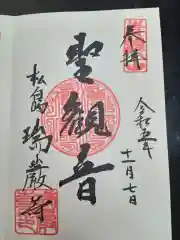 奉拝
令和五年
十一月七日
聖観音
松島
瑞巌寺